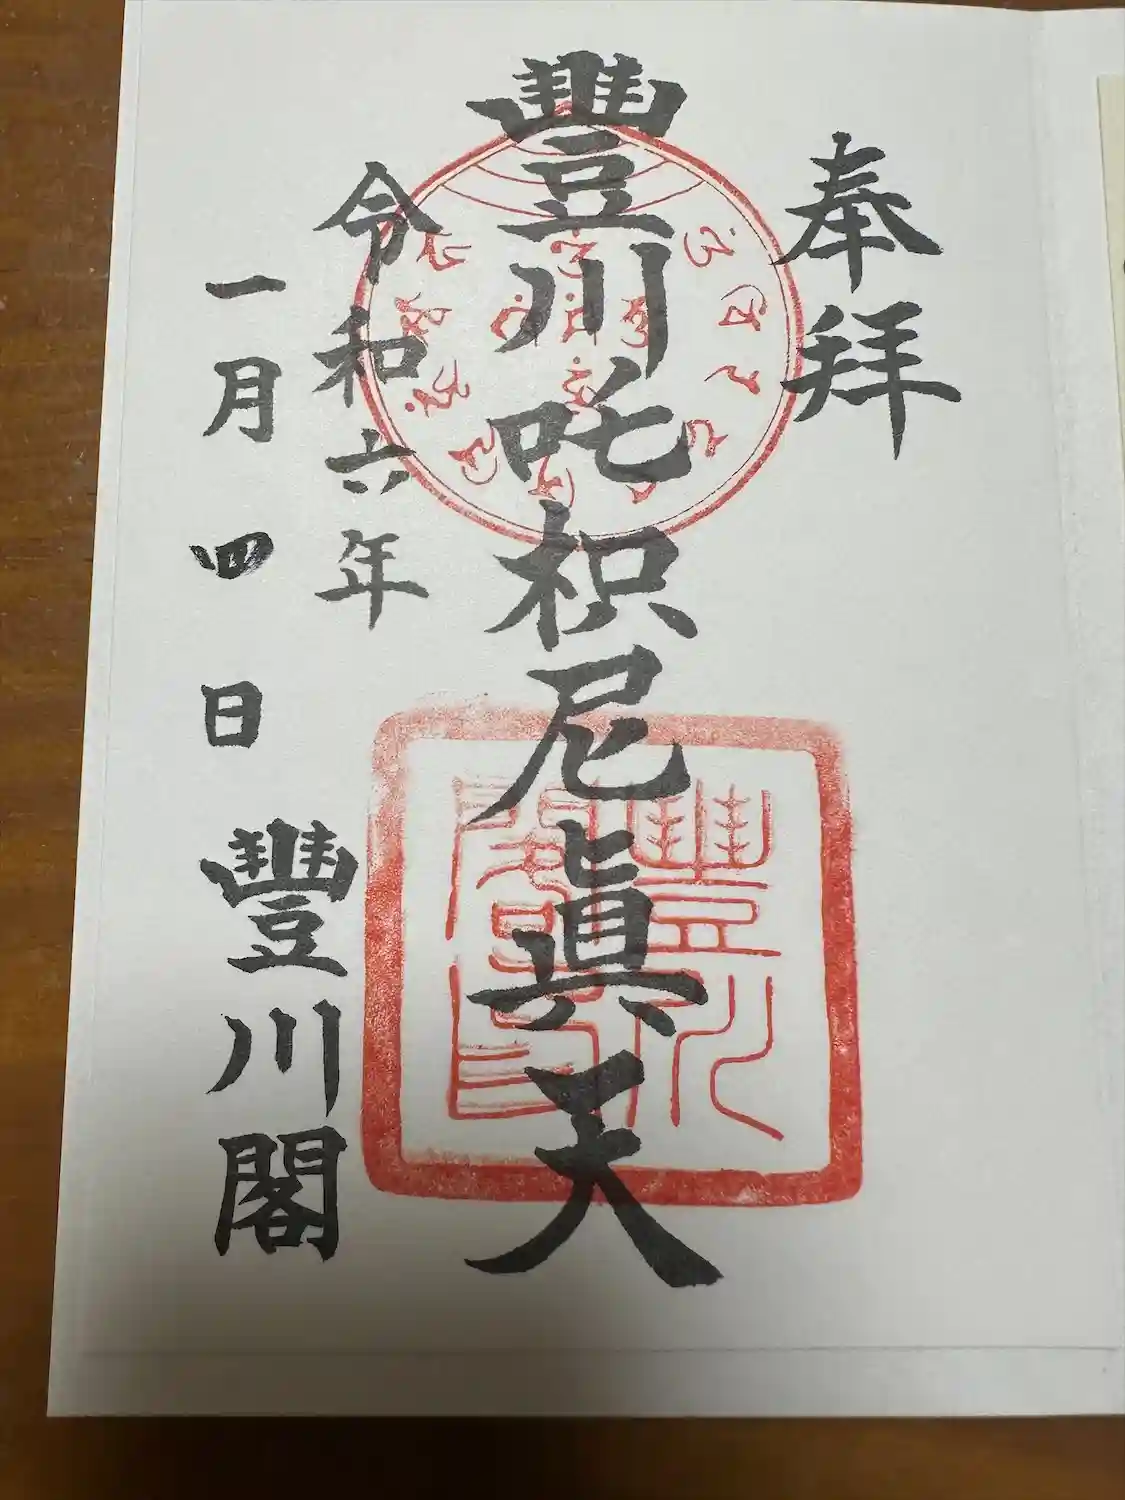 奉拝
豐川吒枳尼眞天
令和六年
一月四日
豐川閣